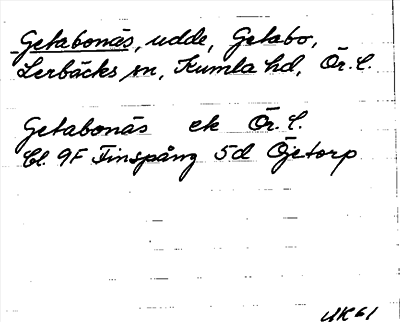 Getabonäs, udde, Getabo,
Lerbäcks sn, Kumla hd, Ör. l.
Getabonäs ek Ör. l.
Bl. 9F Finspång 5d Öjetorp
UK 61